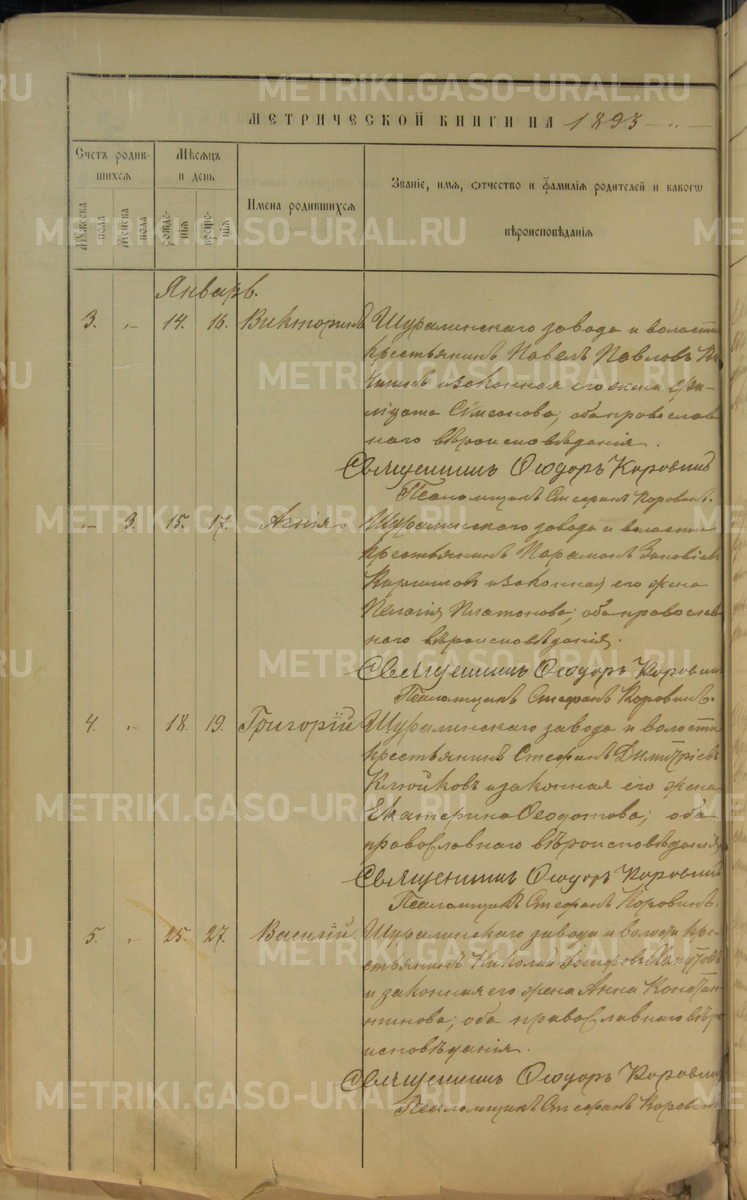 METRIKI.GASO-URAL.RU
МЕТРИЧЕСКОЙ КНИГИ НА 1893
Счетъ родившихся
Мѣсяцъ и день
Имена родившихся
Званіе, имя, отчество и фамилія родителей и какого вѣроисповѣданія
Мужеска пола
Женска пола
рожденія
крещенія
Январь.
3. „ 14. 16. Викторинъ Шуралинскаго завода и волости
крестьянинъ Павелъ Павловъ
и законная его жена
Симеонова; оба православ
наго вѣроисповѣданія.
Священникъ Ѳеодоръ Коровинъ
Псаломщикъ Стефанъ Коровинъ.
„ 3. 15. 17. Агнія Шуралинскаго завода и волости
крестьянинъ Парамонъ Зиновіевъ
и законная его жена
Пелагія Платонова; оба православ
наго вѣроисповѣданія.
Священникъ Ѳеодоръ Коровинъ
Псаломщикъ Стефанъ Коровинъ.
4. „ 18. 19. Григорій Шуралинскаго завода и волости
крестьянинъ Стефанъ Димитріевъ
Клюйковъ и законная его жена
Екатерина Ѳеодотова; оба
православнаго вѣроисповѣданія
Священникъ Ѳеодоръ Коровинъ
Псаломщикъ Стефанъ Коровинъ.
5. „ 25. 27. Василій Шуралинскаго завода и волости кре-
стьянинъ Николай Іосифовъ
и законная его жена Анна Констан
тинова; оба православнаго вѣро
исповѣданія.
Священникъ Ѳеодоръ Коровинъ
Псаломщикъ Стефанъ Коровинъ